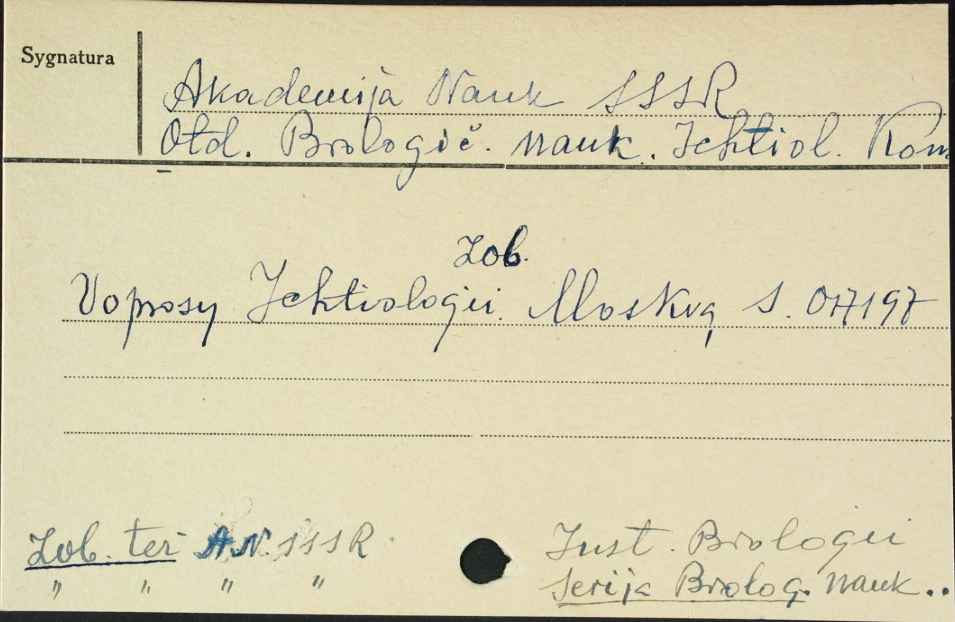 Sygnatura
Akademija Nauk SSSR
Otd. Biologič. nauk. Ichtiol. Kom
Zob.
Voprosy Ichtiologii. Moskva S. 017197
Zob. też A.N. SSSR. Inst. Biologii
" " " " Serija Biolog. nauk..